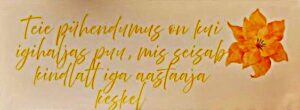 Teie pühendumus on kui
igihaljas puu, mis seisab
kindlalt iga aastaaja
keskel